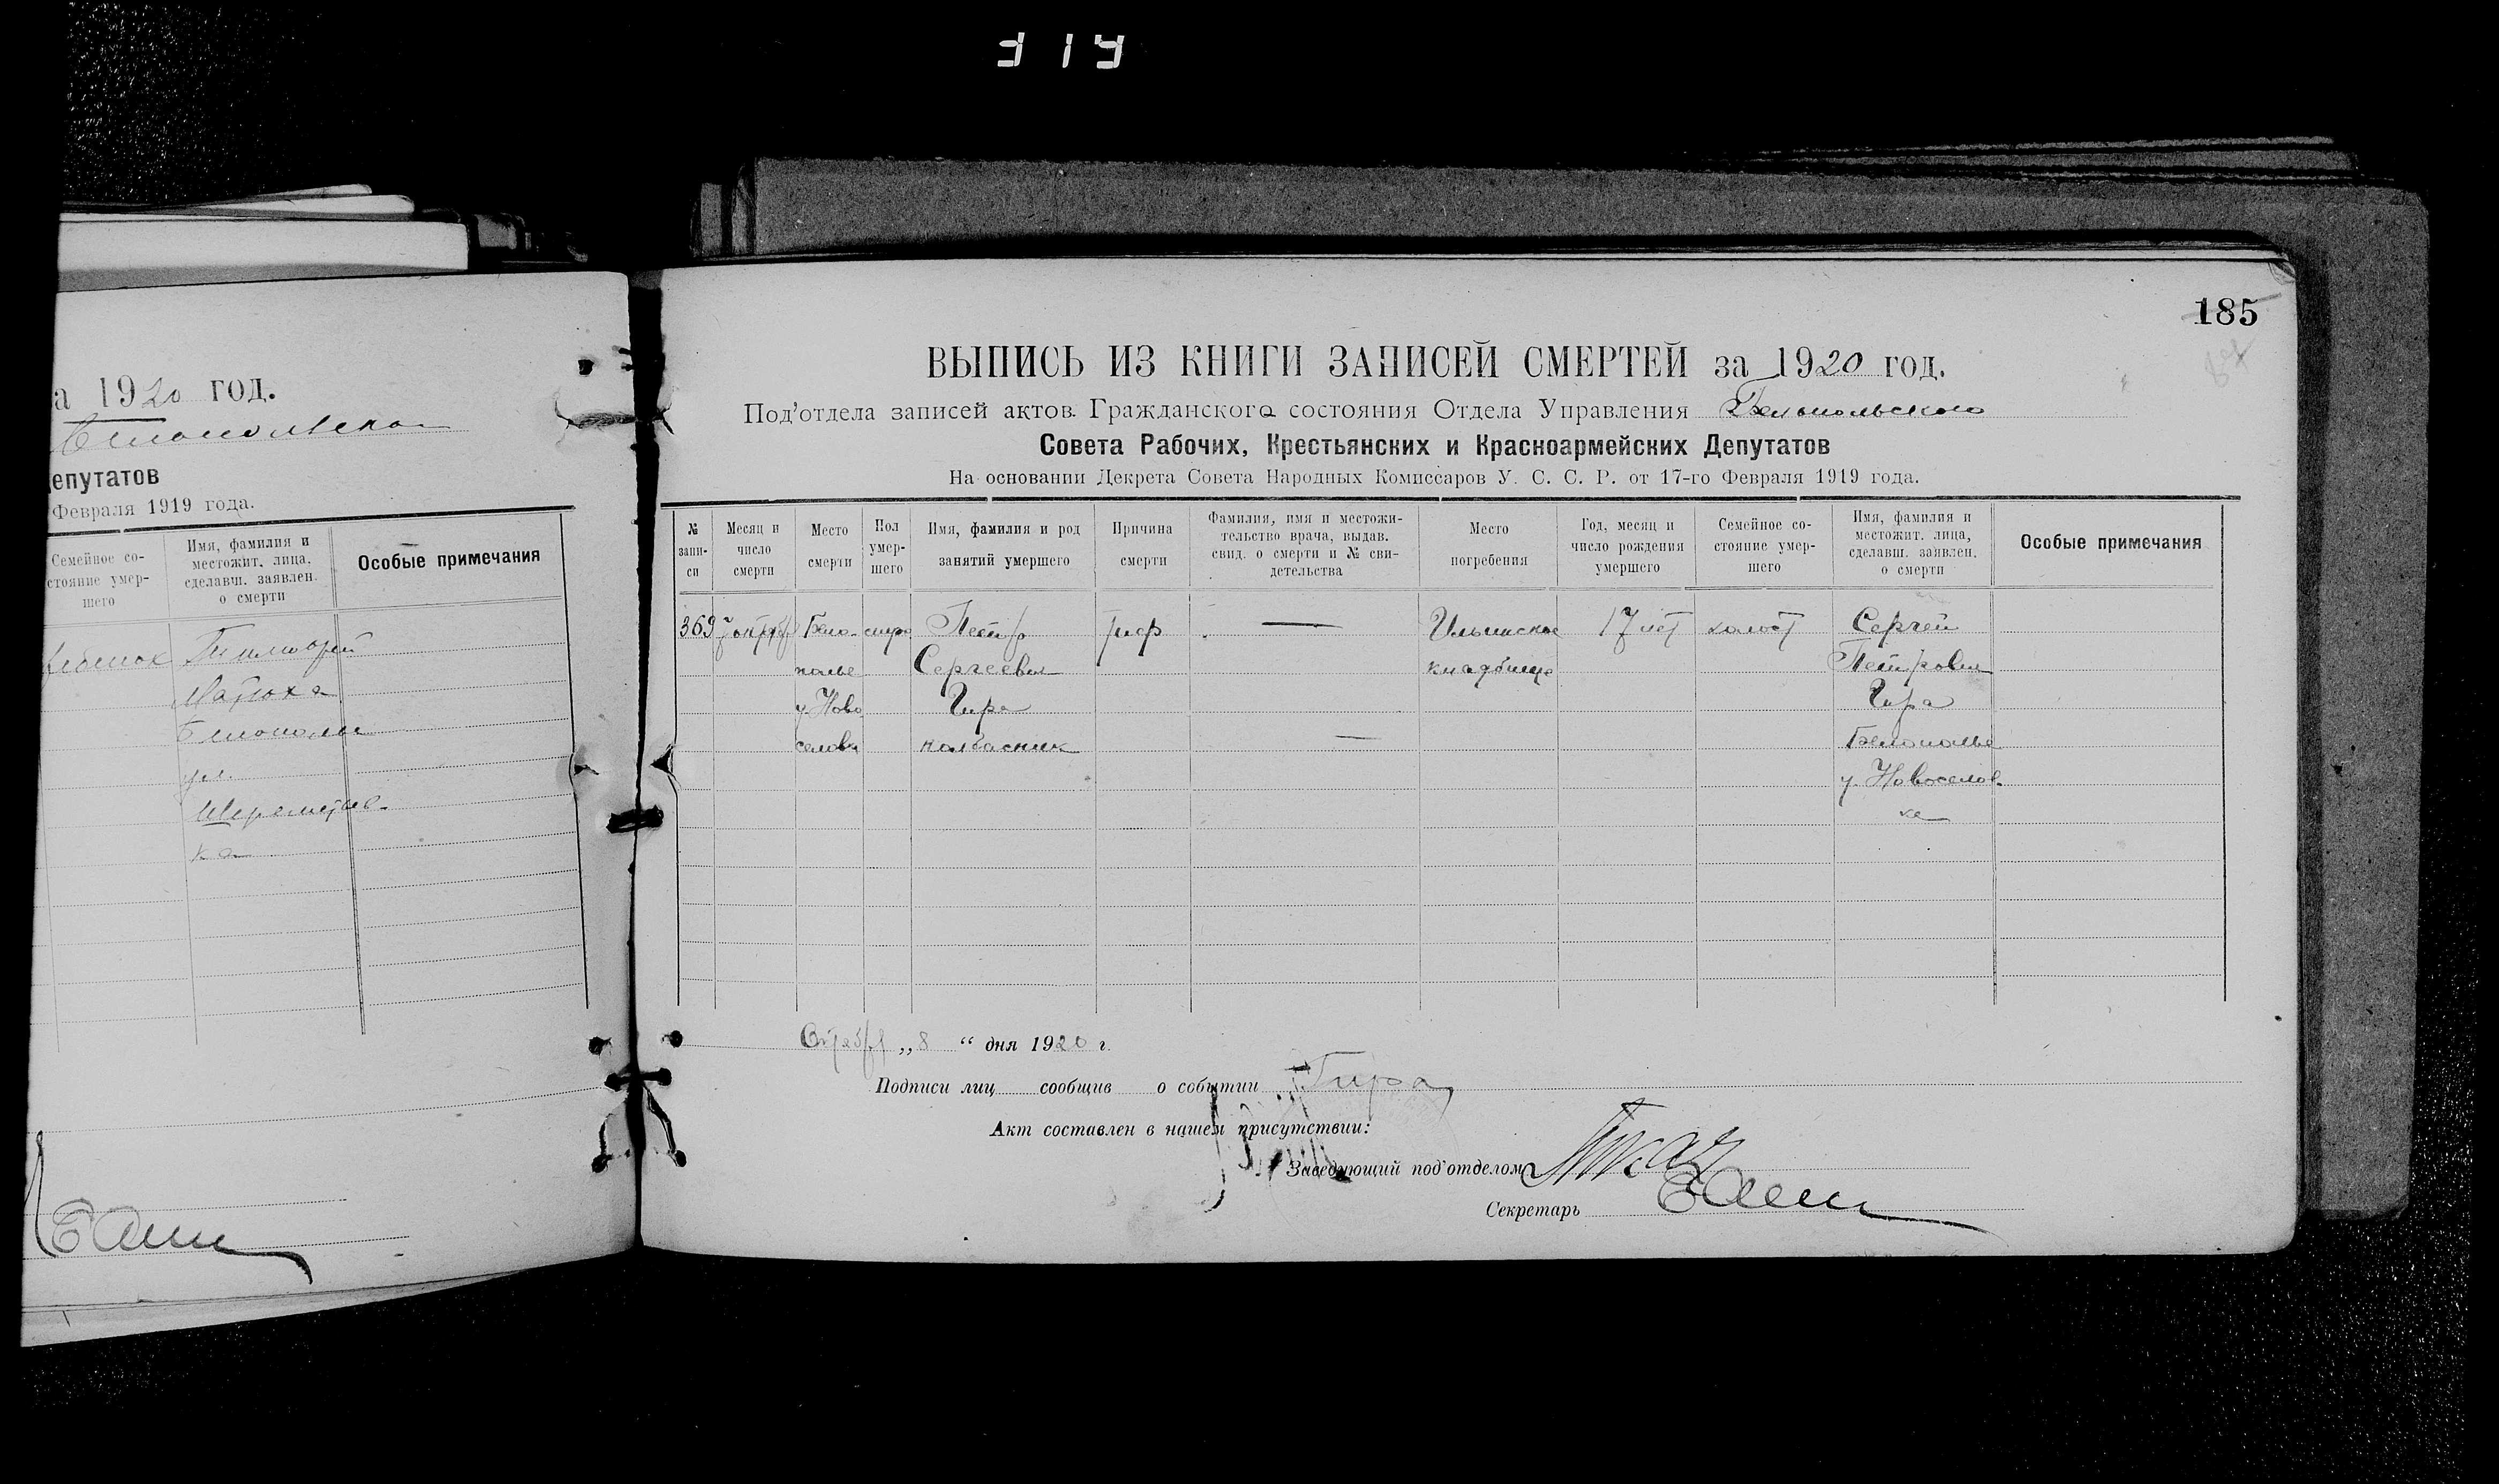 319
а 1920 год.
Белопольской
депутатов
Февраля 1919 года.
Семейное со-
стояние умер-
шего
Имя, фамилия и
местожит. лица,
сделавш. заявлен.
о смерти
Особые примечания
ребенок Тимофей
Матюха
Белополье
ул.
Шереметьев-
ка
185
ВЫПИСЬ ИЗ КНИГИ ЗАПИСЕЙ СМЕРТЕЙ за 1920 год.
Под'отдела записей актов Гражданского состояния Отдела Управления Белопольского
Совета Рабочих, Крестьянских и Красноармейских Депутатов
На основании Декрета Совета Народных Комиссаров У. С. С. Р. от 17-го Февраля 1919 года.
№
запи-
си
Месяц и
число
смерти
Место
смерти
Пол
умер-
шего
Имя, фамилия и род
занятий умершего
Причина
смерти
Фамилия, имя и местожи-
тельство врача, выдав.
свид. о смерти и № сви-
детельства
Место
погребения
Год, месяц и
число рождения
умершего
Семейное со-
стояние умер-
шего
Имя, фамилия и
местожит. лица,
сделавш. заявлен.
о смерти
Особые примечания
369 7 октября Бело- Петр тиф — Ильинское 17 лет холост Сергей
полье Сергеевич кладбище Петрович
у. Ново Гира Гира
селовка колбасник — Белополье
у. Новоселов
ка
Октября „8“ дня 1920 г.
Подписи лиц сообщив о событии Гира
Акт составлен в нашем присутствии:
Заведующий под'отделом
Секретарь